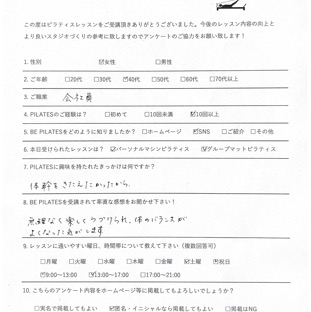 この度はピラティスレッスンをご受講頂きありがとうございました。今後のレッスン内容の向上と
より良いスタジオづくりの参考に致しますのでアンケートのご協力をお願い致します!
1. 性別 ☑女性 □男性
2. ご年齢 □20代 □30代 ☑40代 □50代 □60代 □70代以上
3. ご職業 会社員
4. PILATESのご経験は? □初めて □10回未満 ☑10回以上
5. BE PILATESをどのように知りましたか? □ホームページ ☑SNS □ご紹介 □その他
6. 本日受けられたレッスンは? ☑パーソナルマシンピラティス ☑グループマットピラティス
7. PILATESに興味を持たれたきっかけは何ですか?
体幹をきたえたかったから。
8. BE PILATESを受講されて率直な感想をお聞かせ下さい!
無理なく楽しくつづけられ、体のバランスが
よくなった気がします
9. レッスンに通いやすい曜日、時間帯について教えて下さい(複数回答可)
□月曜 □火曜 □水曜 □木曜 □金曜 ☑土曜 ☑祝日
☑9:00〜13:00 ☑13:00〜17:00 □17:00〜21:00
10. こちらのアンケート内容をホームページ等に掲載してもよろしいでしょうか?
□実名で掲載してもよい ☑匿名・イニシャルなら掲載してもよい □掲載はNG